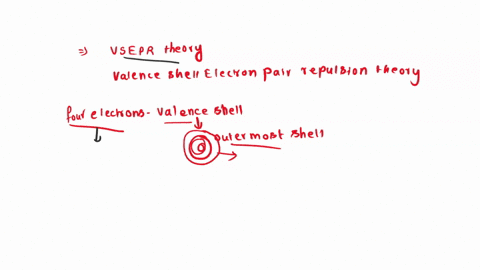 =) VSEPR theory
Valence shell Electron pair repulsion theory
four electrons - valence shell
outermost shell